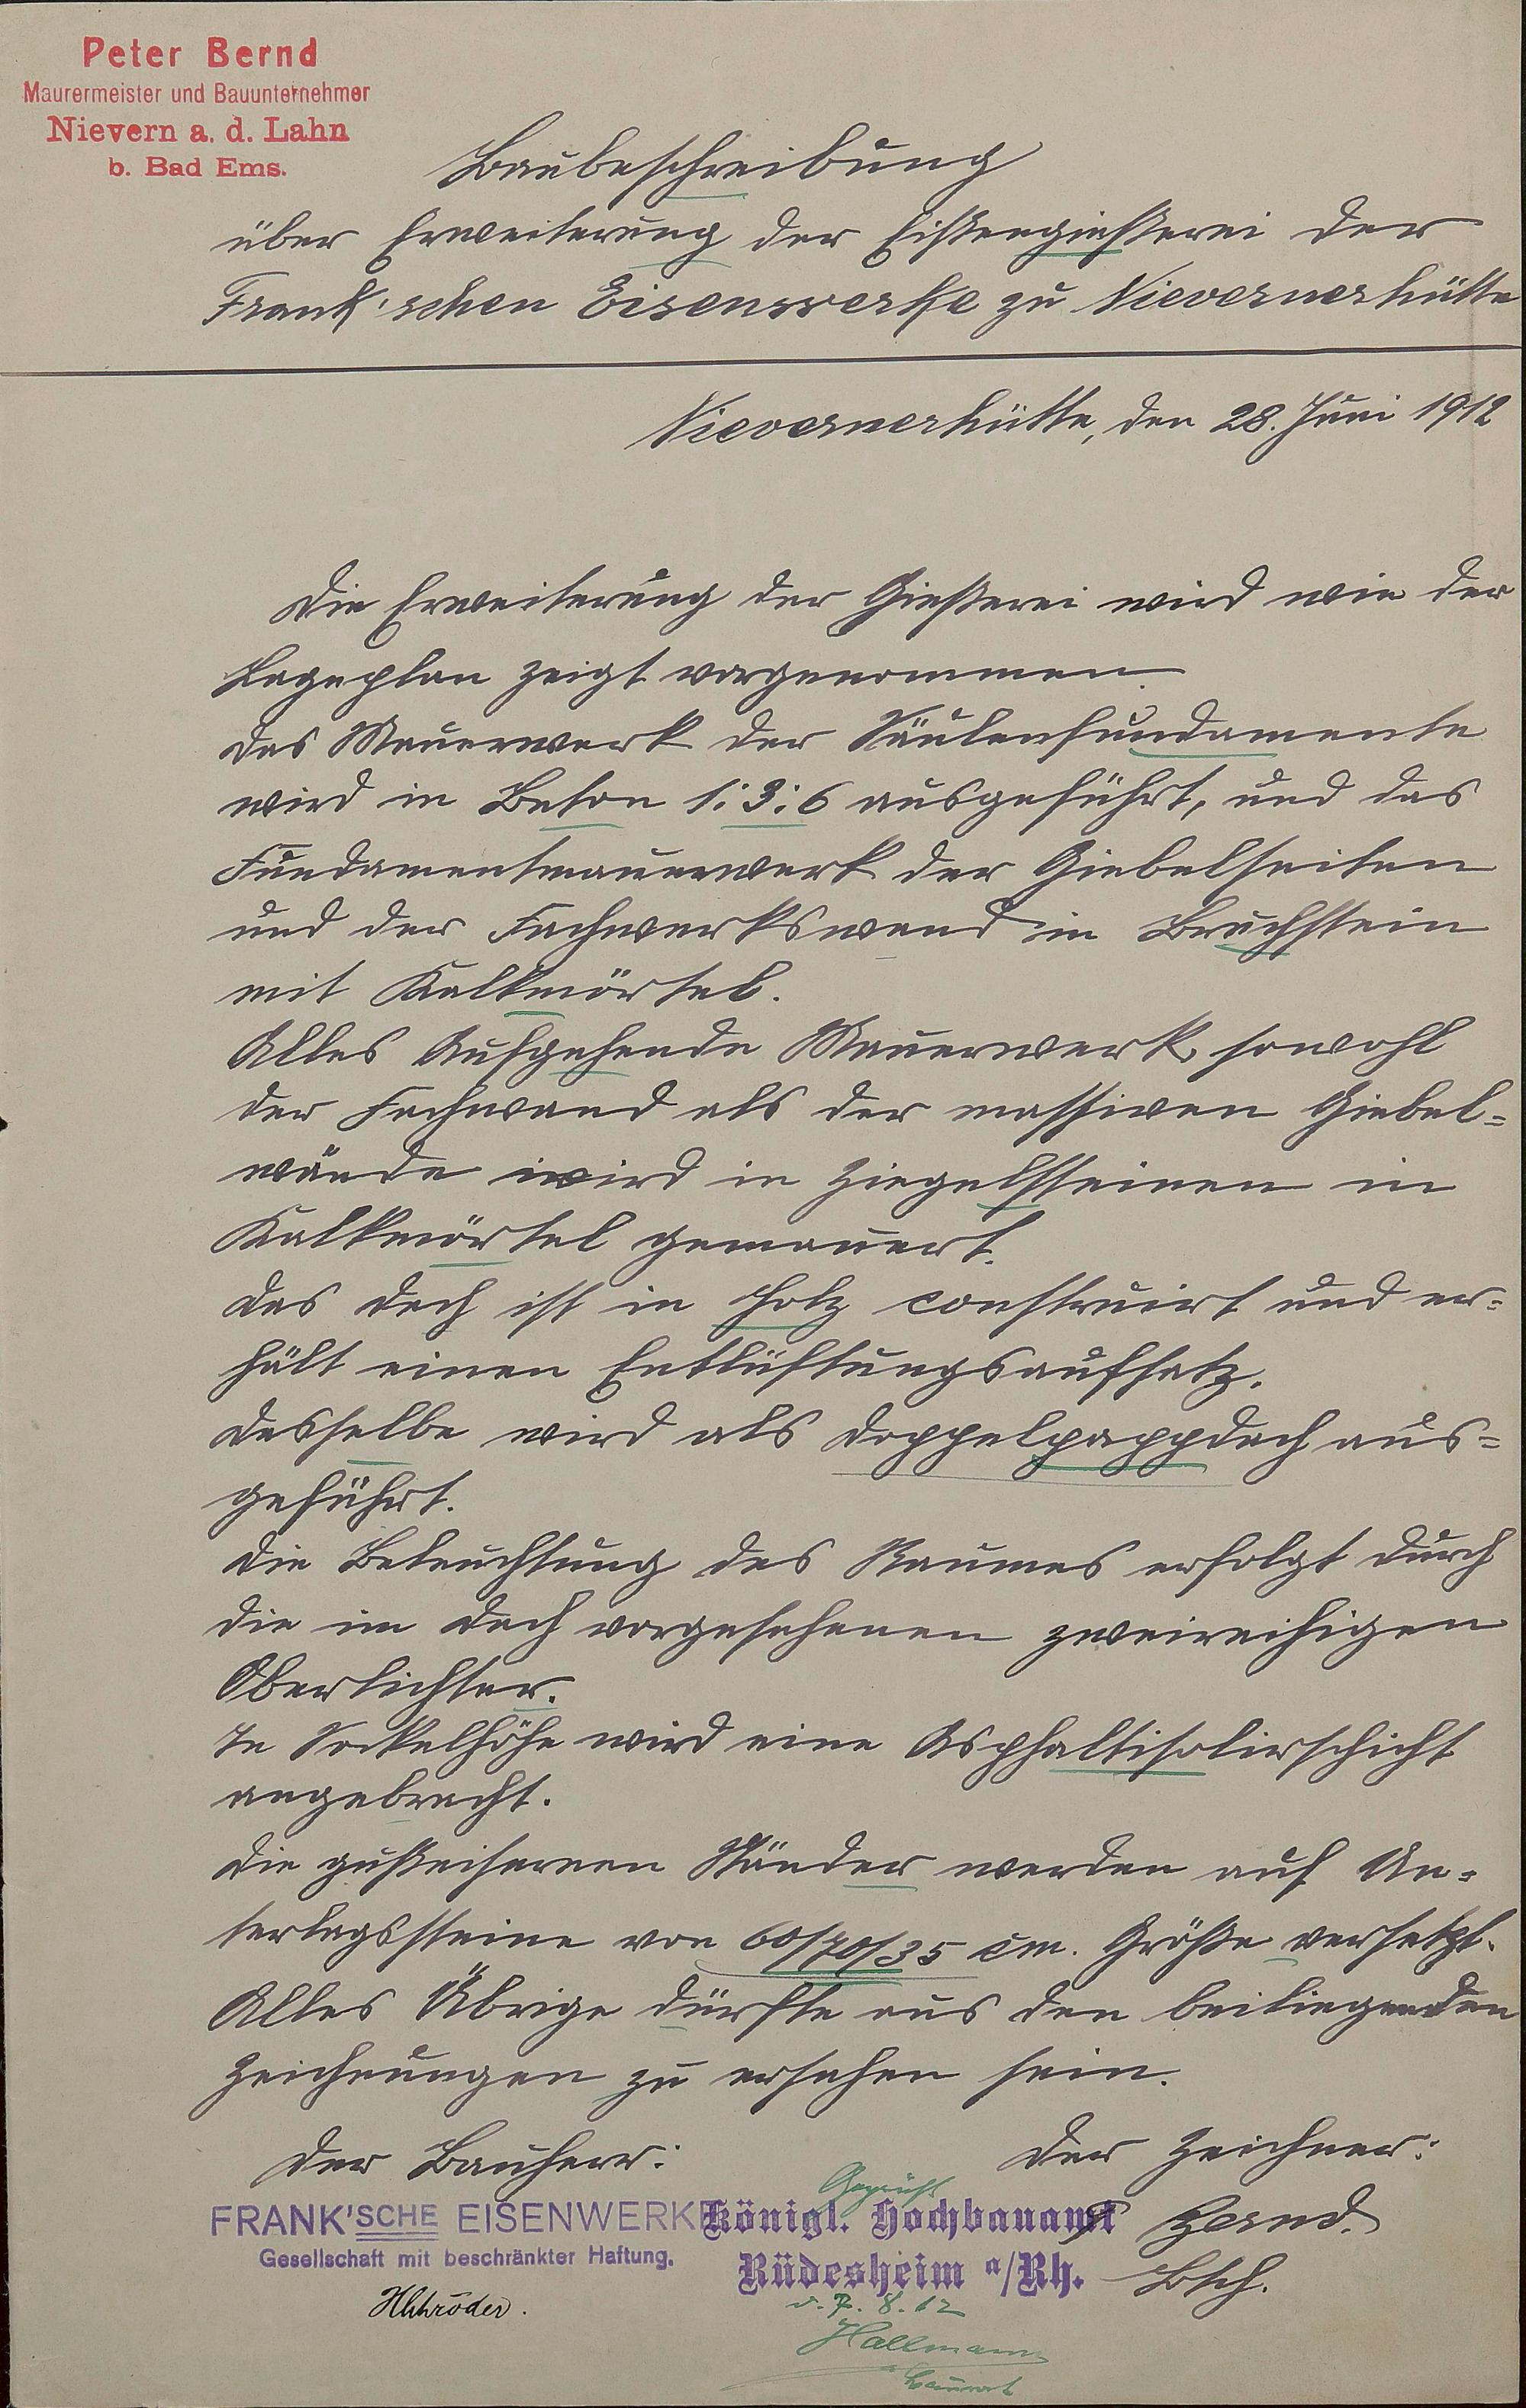 Peter Bernd
Maurermeister und Bauunternehmer
Nievern a. d. Lahn
b. Bad Ems.
Baubeschreibung
über Erweiterung der Eißengießerei der
Frank'schen Eisenwerke zu Nievernerhütte
Nievernerhütte, den 28. Juni 1912
Die Erweiterung der Gießerei wird wie der
Lageplan zeigt vorgenommen.
Das Mauerwerk der Säulenfundamente
wird in Beton 1:3:6 ausgeführt, und das
Fundamentmauerwerk der Giebelseiten
und der Fachwerkswand in Bruchstein
mit Kalkmörtel.
Alles Aufgehende Mauerwerk, sowohl
der Fachwand als der massiven Giebel=
wände wird in Ziegelsteinen in
Kalkmörtel gemauert.
Das Dach ist in Holz construirt und er=
hält einen Entlüftungsaufsatz.
Dasselbe wird als Doppelpappdach aus=
geführt.
Die Beleuchtung des Raumes erfolgt durch
die im Dach vorgesehenen zweireihigen
Oberlichter.
In Sockelhöhe wird eine Asphaltisolirschicht
angebracht.
Die gußeisernen Ständer werden auf Un=
terlagssteine von 60/70/35 cm. Größe versetzt.
Alles Übrige dürfte aus den beiliegenden
Zeichnungen zu ersehen sein.
Der Bauherr:
Der Zeichner:
Geprüft
FRANK'SCHE EISENWERKE
Königl. Hochbauamt
P Bernd.
Gesellschaft mit beschränkter Haftung.
Rüdesheim a/Rh.
Bsch.
d. 7. 8. 12
Hallmann
Baurat